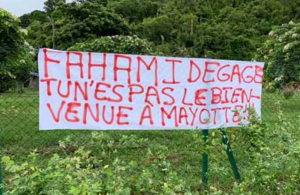 FAHAMI DEGAGE
TU N'ES PAS LE BIEN
VENUE À MAYOTTE !